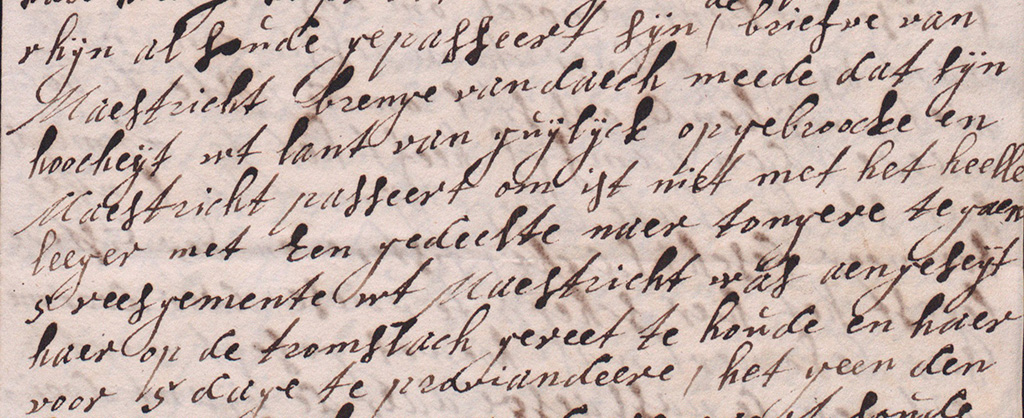 rhijn al soude gepasseert sijn / de briefve van
Maestricht brenge vandaech meede dat sijn
hoocheijt wt lant van guijlijck opgebroocke en
Maestricht passeert om ist niet met het heelle
leeger met Een gedeelte naer tongere te gaen
5 reesgemente wt Maestricht was aengeseijt
haer op de tromslach gereet te houde en haer
voor 5 dage te proviandeere / het geen den
soude